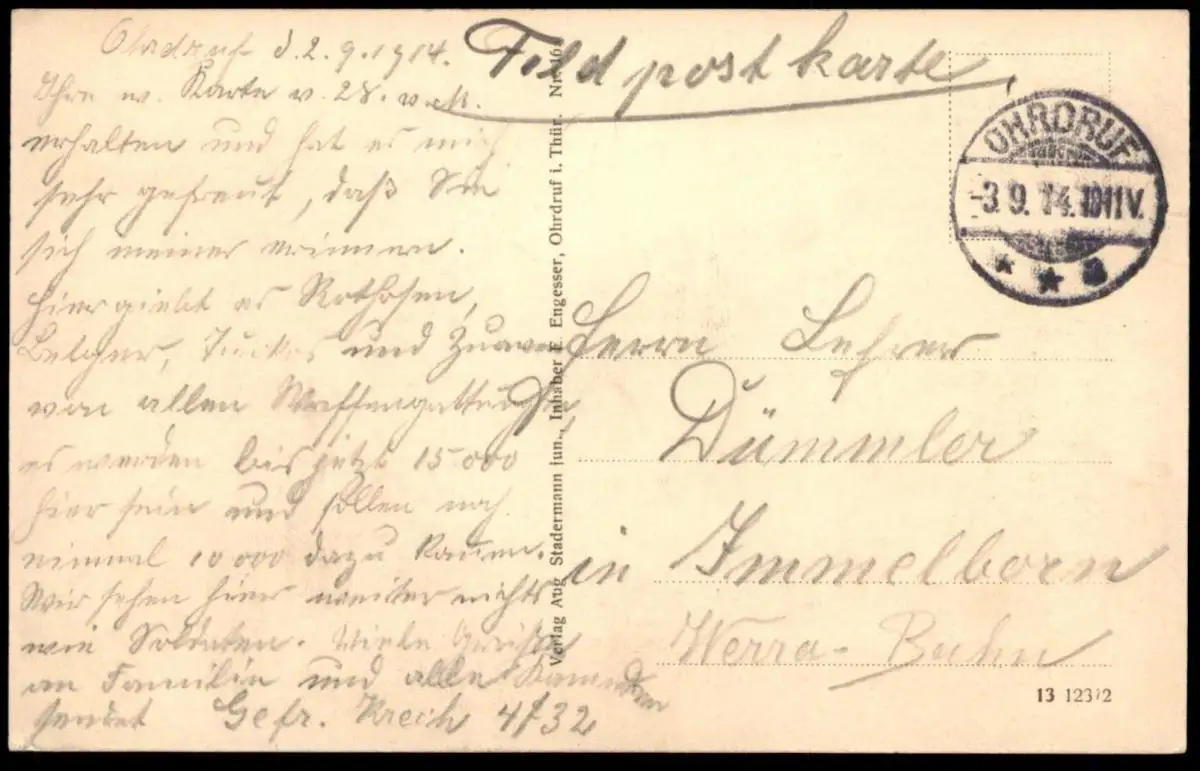 Ohrdruf d. 2.9.1914.
Ihre w. Karte v. 28. v. M.
erhalten und hat es mich
sehr gefreut, daß Sie
sich meiner erinnern.
Hier giebt es Rothosen,
Belgier, Turkos und Zuaven
von allen Waffengattungen,
es werden bis jetzt 15 000
hier sein und sollen noch
einmal 10 000 dazu kommen.
Wir sehen hier weiter nichts
wie Soldaten. Viele Grüße
an Familie und alle Kameraden
sendet Gefr. Kreich 4/32
Feldpostkarte
OHRDRUF
-3.9.14.10-11V.
Herrn Lehrer
Dümmler
in Immelborn
Werra-Bahn
Verlag Aug. Stadermann jun., Inhaber E. Engesser, Ohrdruf i. Thür.
13 12312